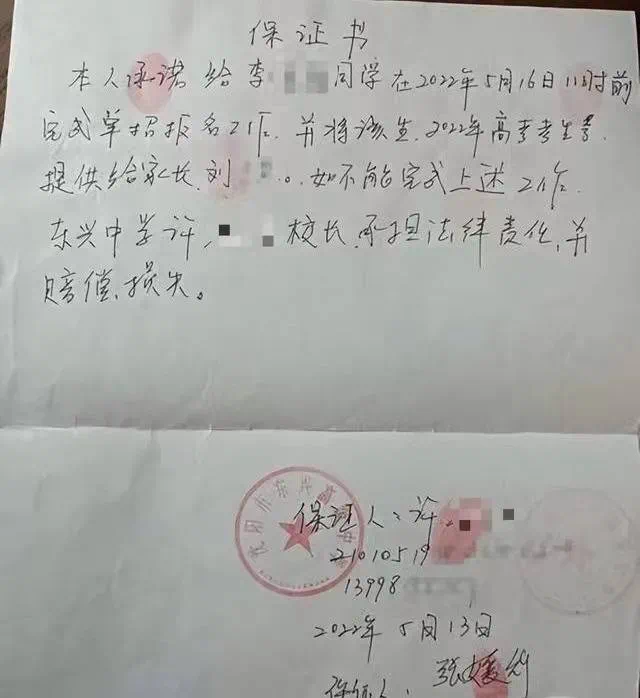 保证书
本人承诺给李 同学在2022年5月16日11时前
完成单招报名工作.并将该生.2022年高考考生号.
提供给家长.刘 。如不能完成上述工作.
东兴中学许, 校长.承担法律责任,并
赔偿.损失。
保证人:许.
21010519
13998
2022年5月13日
保证人:张媛